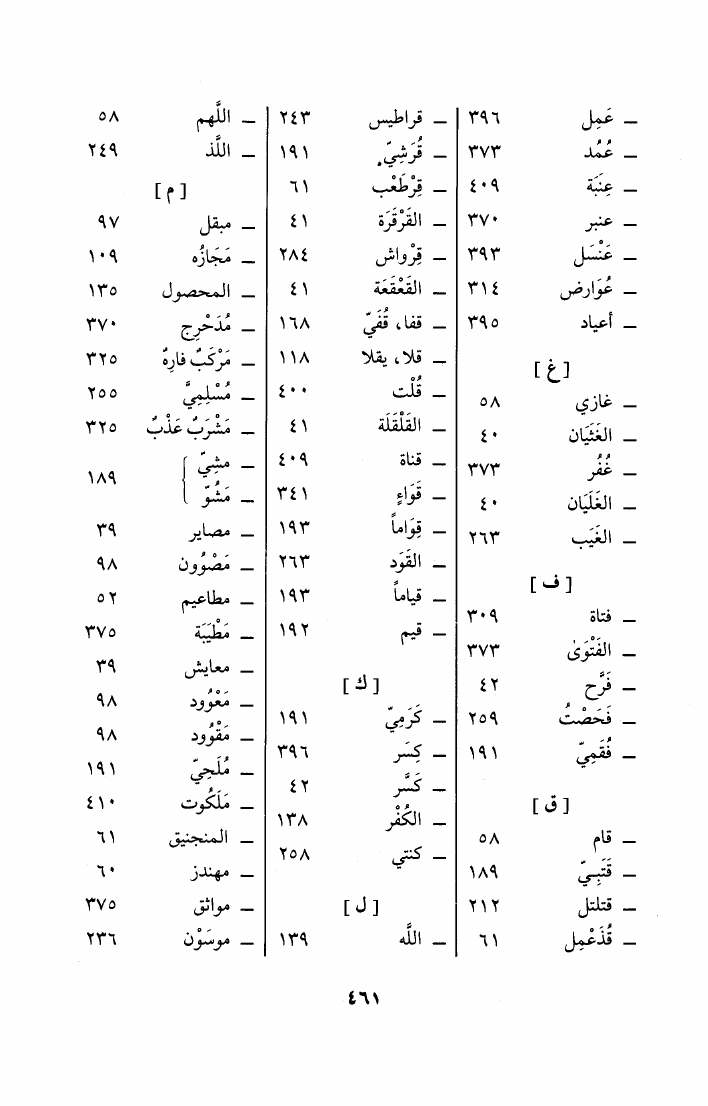 ـ عَمِل ٣٩٦
ـ عُمُد ٣٧٣
ـ عِنَبَة ٤٠٩
ـ عنبر ٣٧٠
ـ عَنْسَل ٣٩٣
ـ عُوَارض ٣١٤
ـ أعياد ٣٩٥
[ غ ]
ـ غازي ٥٨
ـ الغَثَيان ٤٠
ـ غُفُر ٣٧٣
ـ الغَلَيان ٤٠
ـ الغَيَب ٢٦٣
[ ف ]
ـ فتاة ٣٠٩
ـ الفَتْوَىٰ ٣٧٣
ـ فَرَّح ٤٢
ـ فَحَصْتُ ٢٥٩
ـ فُقَمِيّ ١٩١
[ ق ]
ـ قام ٥٨
ـ قَتَبِيّ ١٨٩
ـ قتلتل ٢١٢
ـ قُذَعْمِل ٦١
ـ قراطيس ٢٤٣
ـ قُرَشِيّ ١٩١
ـ قِرْطَعْب ٦١
ـ القَرْقَرَة ٤١
ـ قِرْواش ٢٨٤
ـ القَعْقَعَة ٤١
ـ قفا، قُفَيّ ١٦٨
ـ قلا، يقلا ١١٨
ـ قُلْت ٤٠٠
ـ القَلْقَلَة ٤١
ـ قناة ٤٠٩
ـ قَوَاءٍ ٣٤١
ـ قِوَاماً ١٩٣
ـ القَوَد ٢٦٣
ـ قياماً ١٩٣
ـ قيم ١٩٢
[ ك ]
ـ كَرَمِيّ ١٩١
ـ كِسَر ٣٩٦
ـ كَسَّر ٤٢
ـ الكُفْر ١٣٨
ـ كنتي ٢٥٨
[ ل ]
ـ اللَّه ١٣٩
ـ اللَّهم ٥٨
ـ اللَّذ ٢٤٩
[ م ]
ـ مبقل ٩٧
ـ مَجَازُه ١٠٩
ـ المحصول ١٣٥
ـ مُدَحْرِج ٣٧٠
ـ مَرْكَبٌ فارِهٌ ٣٢٥
ـ مُسْلِمِيَّ ٢٥٥
ـ مَشْرَبٌ عَذْبٌ ٣٢٥
ـ مَشِيّ
ـ مَشُوّ } ١٨٩
ـ مصاير ٣٩
ـ مَصْوُون ٩٨
ـ مطاعيم ٥٢
ـ مَطْيَبَة ٣٧٥
ـ معايش ٣٩
ـ مَعْوُود ٩٨
ـ مَقْوُود ٩٨
ـ مُلَحِيّ ١٩١
ـ مَلَكُوت ٤١٠
ـ المنجنيق ٦١
ـ مهندز ٦٠
ـ مواثق ٣٧٥
ـ موسَوْن ٢٣٦
٤٦١